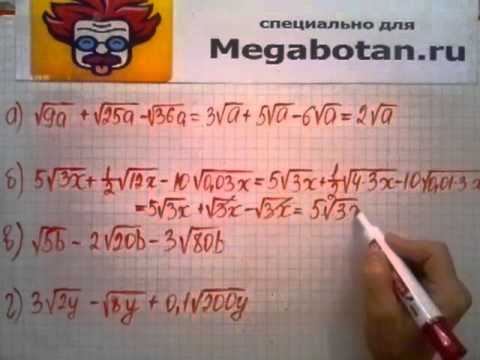 специально для
Megabotan.ru
а) √9a + √25a - √36a = 3√a + 5√a - 6√a = 2√a
б) 5√3x + 1/2√12x - 10√0,03x = 5√3x + 1/2√4·3x - 10√0,01·3x
= 5√3x + √3x - √3x = 5√3x
в) √5b - 2√20b - 3√80b
г) 3√2y - √8y + 0,1√200y